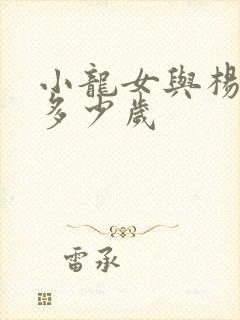 小龍女與楊
多少歲
雷承